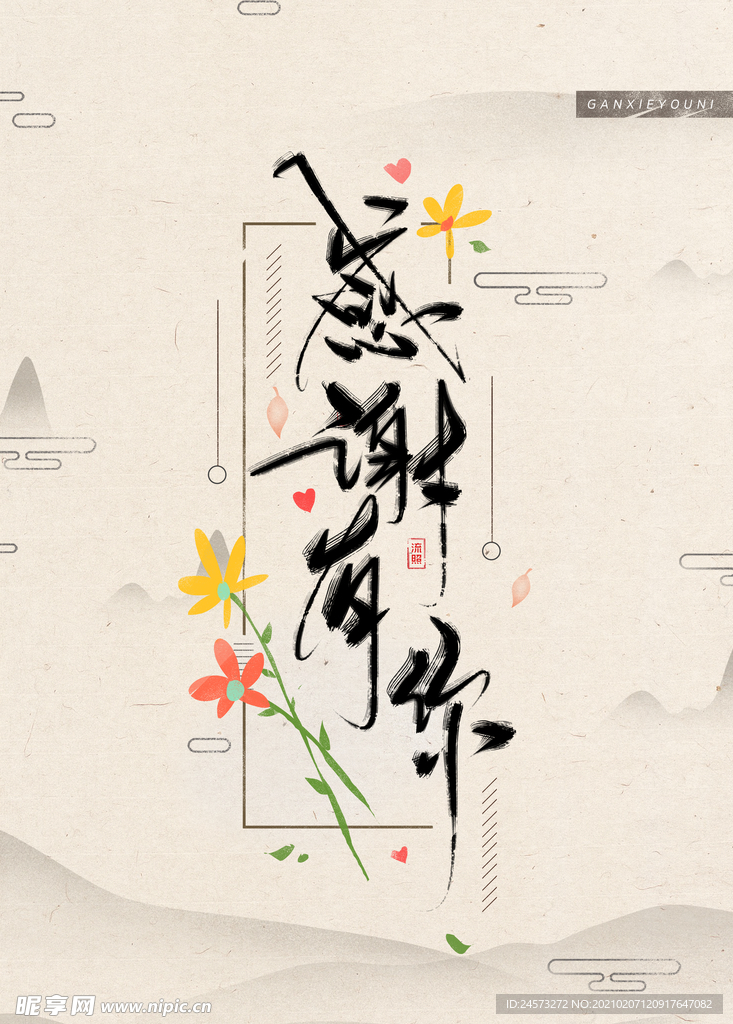 GANXIEYOUNI
感谢有你
流照
昵享网 www.nipic.cn
ID:24573272 NO:20210207120917647082